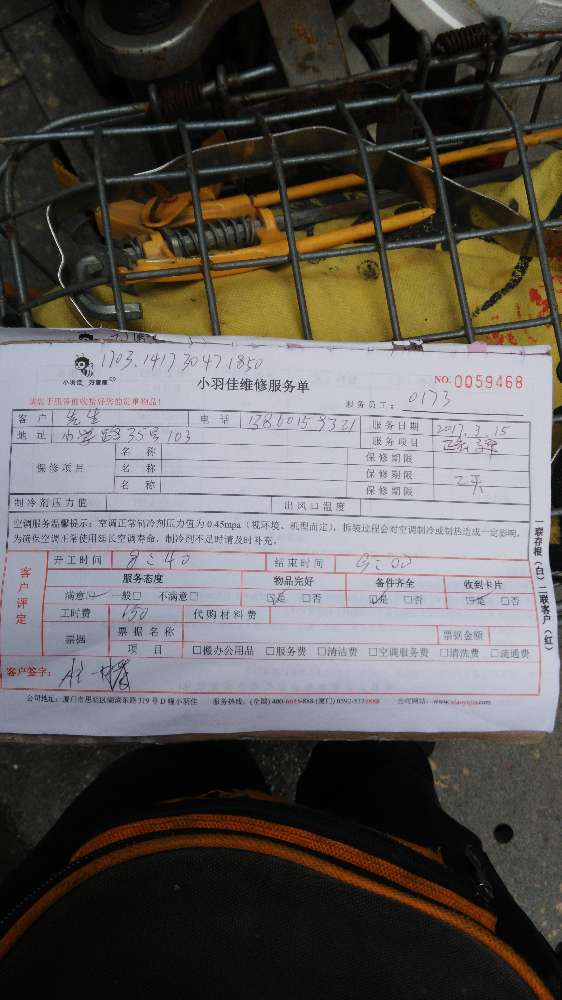 1703.141730471850
小羽佳 好管家
小羽佳维修服务单
NO.0059468
服务员工： 0173
客户 先生 电话 服务日期 2017.3.15
地址 35号103 服务项目
保修项目 名称 保修期限
名称 保修期限
名称 保修期限
制冷剂压力值 出风口温度
空调服务温馨提示：空调正常制冷剂压力值为0.45mpa（视环境、机型而定），拆装过程会对空调制冷或制热造成一定影响，
为确保空调正常使用延长空调寿命，制冷剂不足时请及时补充。
开工时间 8:40 结束时间 9:00
客户评定
服务态度 物品完好 备件齐全 收到卡片
满意☑ 一般□ 不满意□ ☑是 □否 ☑是 □否 ☑是 □否
工时费 150 代购材料费
票据 票据名称 票据金额
项目 □搬办公用品 □服务费 □清洁费 □空调服务费 □清洗费 □疏通费
客户签字：
一联存根（白）二联客户（红）
公司地址：厦门市思明区 319号D幢小羽佳 服务热线：(全国) 400-6615-888 (厦门) 公司网站：www.xiaoyujia.com